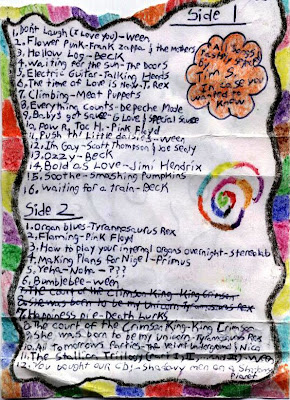 Side 1
1. Don't Laugh (I Love you)-Ween
2. Flower Punk-Frank Zappa & the mothers
3. Hollow Log-Beck
4. Waiting for the Sun-The Doors
5. Electric Guitar-Talking Heads
6. The time of Love is Now-T. Rex
7. Climbing-Meat Puppets
8. Everything Counts-Depeche Mode
9. Baby's got sauce-G Love & Special Sauce
10. Pow R. Toc H.-Pink Floyd
11. Push th' Little daisies-Ween
12. I'm Gay-Scott Thompson & Joe Sealy
13. Ozzy-Beck
14. Bold as Love-Jimi Hendrix
15. Soothe-Smashing Pumpkins
16. Waiting for a train-Beck
All Songs
Tastefully
by
Tim S.
In case you
wanted to
know
Side 2
1. Organ blues-Tyrannosaurus Rex
2. Flaming-Pink Floyd
3. How to play your internal organs overnight-stereolab
4. Making Plans for Nigel-Primus
5. Yeha-Noha-???
6. Bumblebee-Ween
7. The Court of the Crimson King-King Crimson
8. She was born to be my Unicorn-Tyrannosaurus Rex
7. Happiness pie-Death Lurks
8. The court of the Crimson King-King Crimson
9. She was born to be my unicorn-Tyrannosaurus Rex
10. All Tomorrows Parties-The Velvet Underground & Nico
11. The Stallion Trilogy (Part I, II, and III)-Ween
12. You bought our CDs-Shadowy men on a Shadowy
Planet